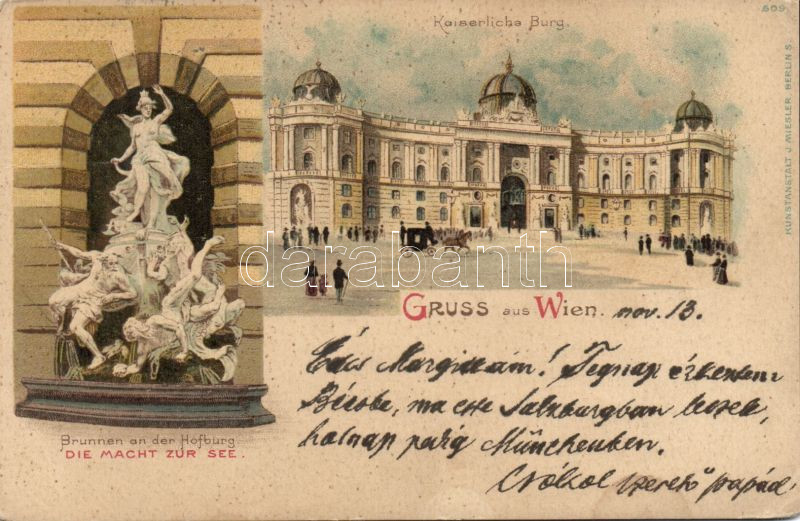 Kaiserliche Burg.
509
KUNSTANSTALT J. MIESLER, BERLIN S.
darabanth
GRUSS aus Wien. nov. 13.
Édes Margittám! Tegnap érkeztem
Bécsbe, ma este Salzburgban leszek,
holnap pedig Münchenben.
Csókol szerető papád
Brunnen an der Hofburg
DIE MACHT ZUR SEE.